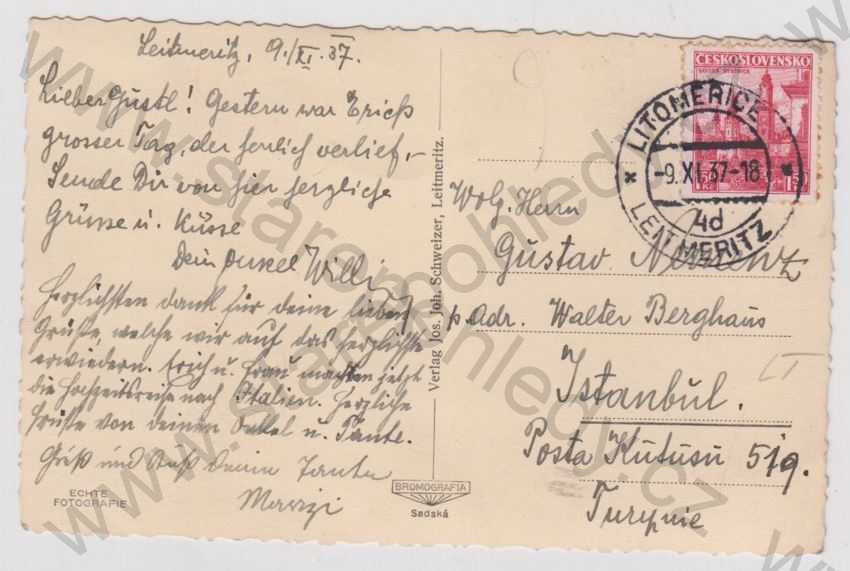 Leitmeritz, 9./XI. 37.
Lieber Gustl! Gestern war Erichs
grosser Tag, der herrlich verlief,-
Sende Dir von hier herzliche
Grüsse u. Küsse
Dein Onkel Willi
Herzlichsten Dank für deine lieben
Grüße, welche wir auf das herzlichste
erwiedern. Erich u. Frau machten jetzt
die Hochzeitsreise nach Italien. Herzliche
Grüße von deinen Onkel u. Tante.
Gruß und Kuß Deine Tante
ECHTE
FOTOGRAFIE
BROMOGRAFIA
Sadská
Verlag Jos. Joh. Schweizer, Leitmeritz.
ČESKOSLOVENSKO
LITOMĚŘICE
-9.XI.37-18
4d
LEITMERITZ
Wolg. Herrn
Gustav
p. Adr. Walter Berghaus
Istanbul.
Posta Kutusu 519.
Turquie
www.starepohledy.cz